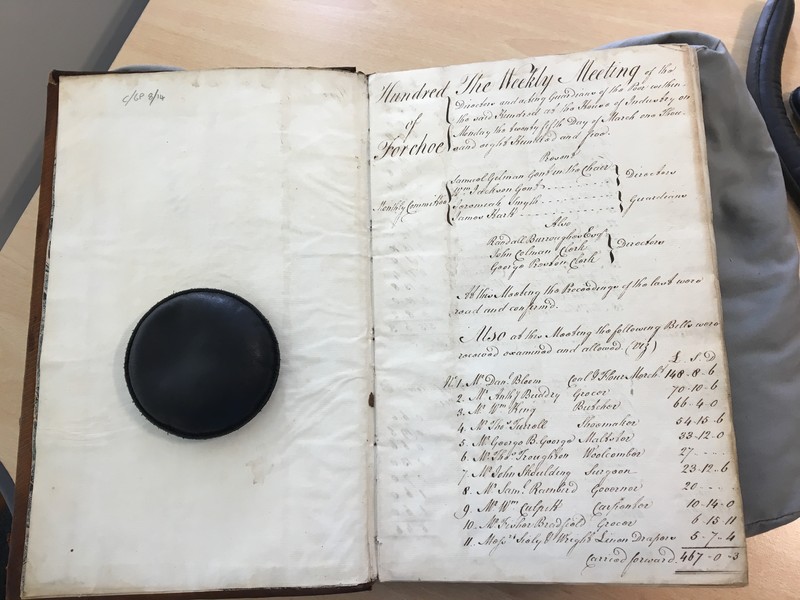 C/GP 8/14
Hundred of Forehoe
The Weekly Meeting of the
Directors and acting Guardians of the Poor within
the said Hundred at the House of Industry on
Monday the twenty fifth Day of March one Thou-
sand eight Hundred and five.
Present
Samuel Gilman Gent in the Chair
Wm Jackson Gent
Directors
Monthly Committee
Jeremiah Smyth
James Hark
Guardians
Also
Randall Burroughes Esqr
John Colman Clerk
George Preston Clerk
Directors
At this Meeting the Proceedings of the last were
read and confirmed.
Also at this Meeting the following Bills were
received examined and allowed (viz)
£ S D
No 1. Mr Danl Bloom Coal & Flour Mercht 148-8-6
2. Mr Anthy Buddry Grocer 70-10-6
3. Mr Wm King Butcher 66-4-0
4. Mr Thos Turrell Shoemaker 54-15-6
5 Mr George B. George Maltster 33-12-0
6. Mr Thos Troughton Woolcomber 27 - - -
7 Mr John Skoulding Surgeon 23-12-6
8. Mr Saml Rambird Governor 20 - - -
9. Mr Wm Culpitt Carpenter 10-14-0
10. Mr Fisher Bradfield Grocer 6-15-11
11. Messrs Sealy & Wright Linen Drapers 5-7-4
Carried forward. 467-0-3